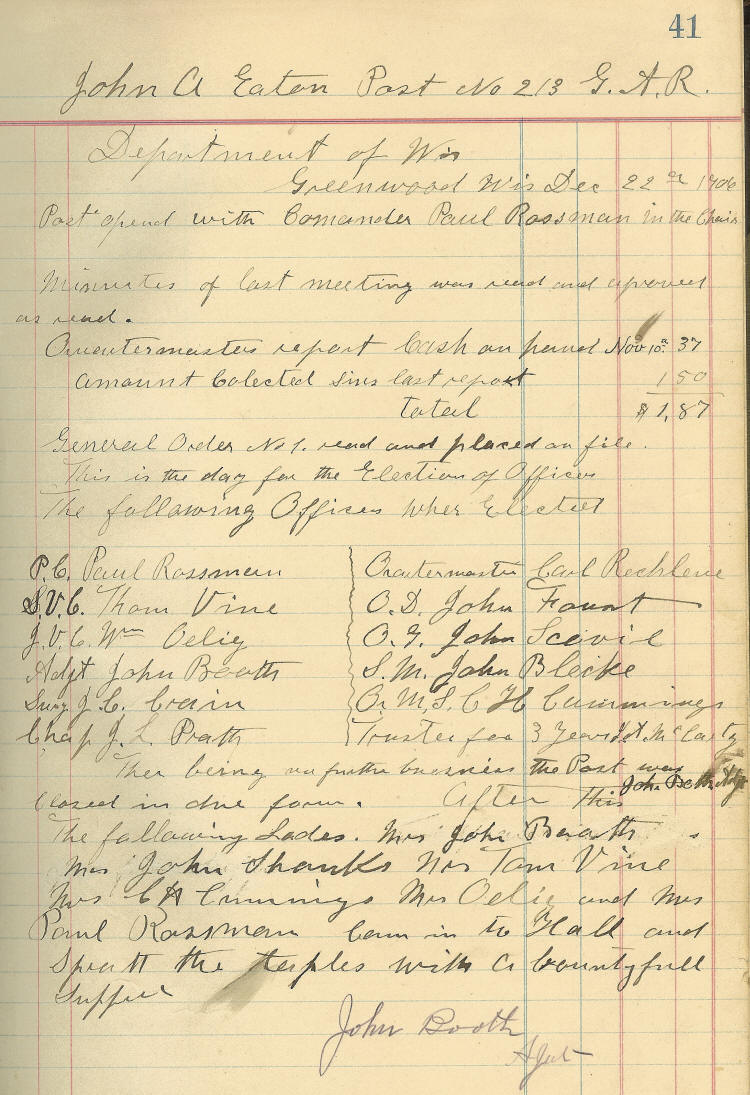 41
John A Eaton Post No 213 G. A. R.
Department of Wis
Greenwood Wis Dec 22 1906
Post opend with Comander Paul Rossman in the Chair
Minnutes of last meeting was read and aproved
as read.
Quautermasters report Cash on hand Nov 10 37
amount Colected sins last report 1 50
total $1,87
General Order No 1. read and placed on file.
This is the day for the Election of Offices
The following Offices wher Elected
P. C. Paul Rossman Quautermaster Carl
S. V. C. Thom Vine O. D. John
J. V. C. Wm Oelig O. G. John
Adjt John Booth S. M. John Blecke
Surg J. C. Crain Q. M. S. C H Cummings
Chap J. L. Prath Trustee for 3 Years Mc Carty
Ther being no further buesness the Post was
John Booth Adjt
Closed in due form. After This
The following Lades. Mrs John Booth
Mrs John Shanks Mrs Tom Vine
Mrs C H Cmmings Mrs Oelig and Mrs
Paul Rossman Cam in to Hall and
Spratt the taples with a bountyfull
Supper
John Booth
Ajut